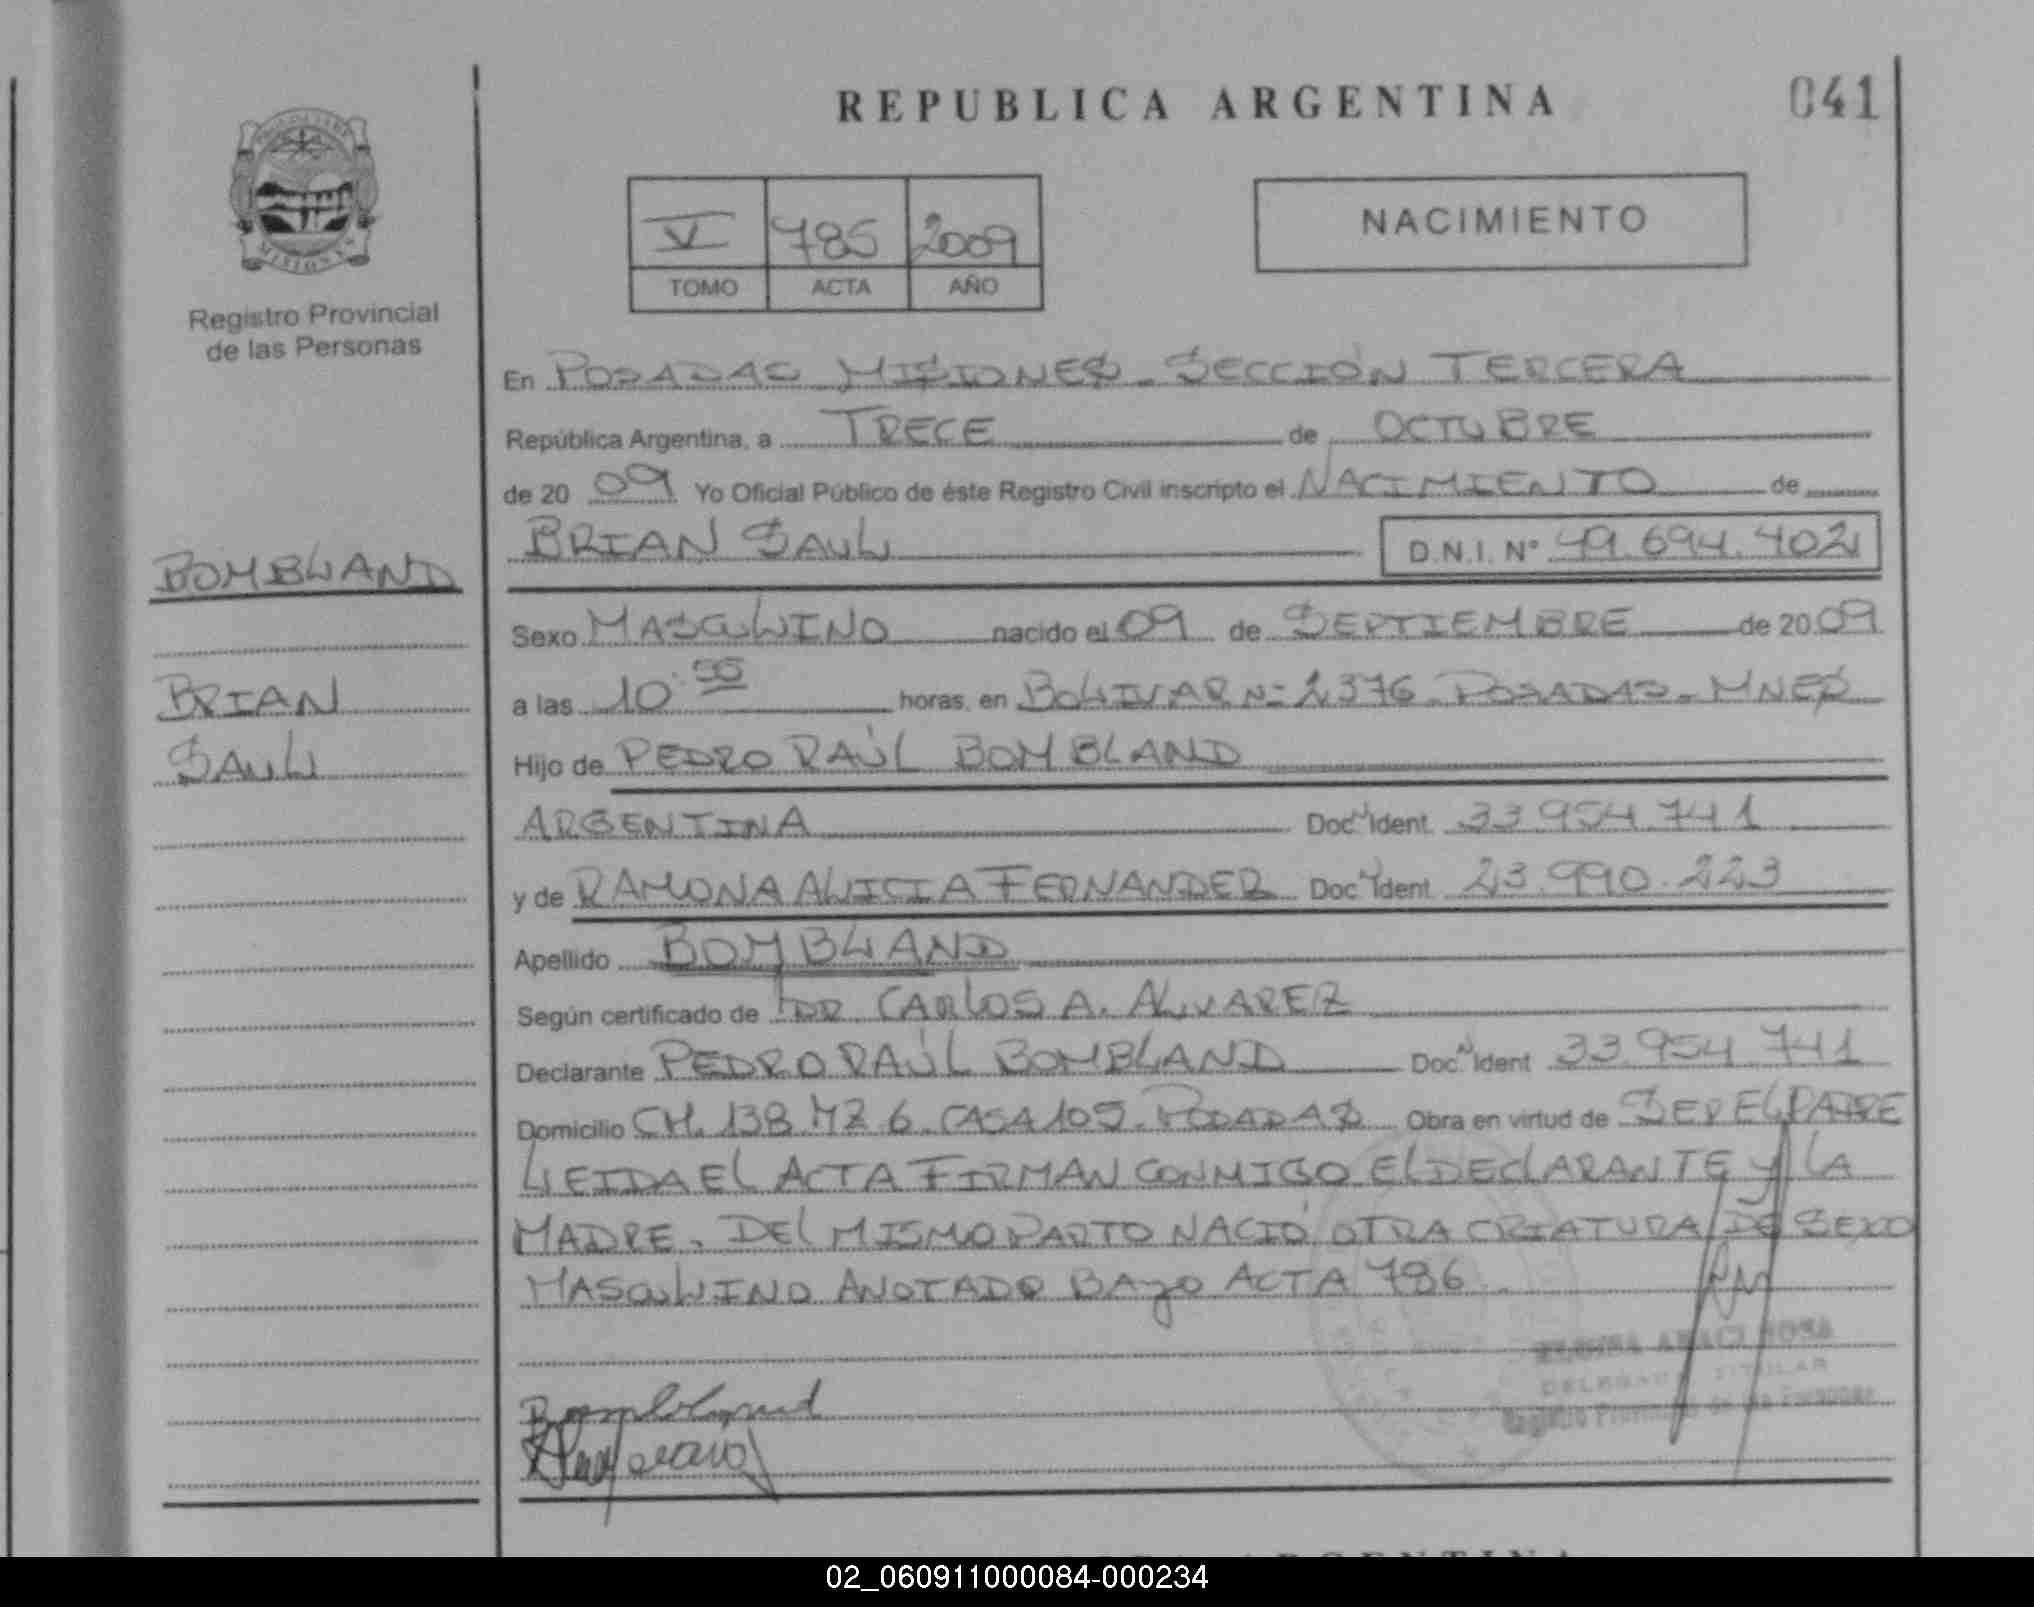 REPUBLICA ARGENTINA
041
MISIONES
Registro Provincial
de las Personas
V 785 2009
TOMO ACTA AÑO
NACIMIENTO
En POSADAS MISIONES - SECCIÓN TERCERA
República Argentina, a TRECE de OCTUBRE
de 20 09 Yo Oficial Público de éste Registro Civil inscripto el NACIMIENTO de
BRIAN SAUL D.N.I. Nº 49.694.402
BOMBLAND
BRIAN
SAUL
Sexo MASCULINO nacido el 09 de SEPTIEMBRE de 2009
a las 10:55 horas, en BOLIVAR Nº 2376 - POSADAS - MNES
Hijo de PEDRO RAÚL BOMBLAND
ARGENTINA Doc. Ident. 33.954.741
y de RAMONA ALICIA FERNANDEZ Doc. Ident. 23.990.223
Apellido BOMBLAND
Según certificado de DR. CARLOS A. ALVAREZ
Declarante PEDRO RAÚL BOMBLAND Doc. Ident. 33.954.741
Domicilio CH. 138 MZ 6. CASA 105. POSADAS Obra en virtud de SER EL PADRE
LEIDA EL ACTA FIRMAN CONMIGO EL DECLARANTE y LA
MADRE. DEL MISMO PARTO NACIÓ OTRA CRIATURA DE SEXO
MASCULINO ANOTADO BAJO ACTA 786
Bombland
TITULAR
Registro Provincial de las Personas
02_060911000084-000234